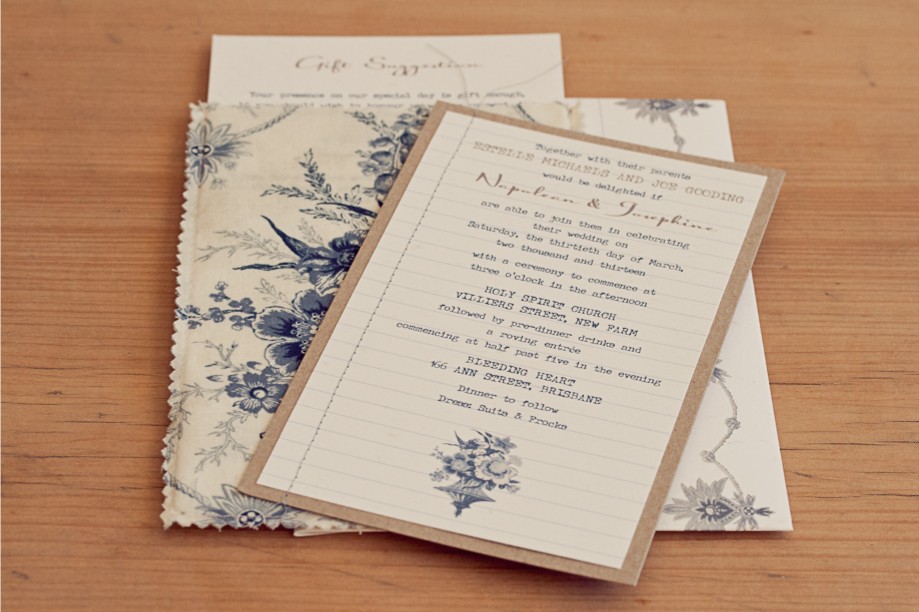 Gift Suggestion
Your presence on our special day is gift enough,
Together with their parents
ESTELLE MICHAELS AND JOE GOODING
would be delighted if
Napolean & Josephine
are able to join them in celebrating
their wedding on
Saturday, the thirtieth day of March,
two thousand and thirteen
with a ceremony to commence at
three o'clock in the afternoon
HOLY SPIRIT CHURCH
VILLIERS STREET, NEW FARM
followed by pre-dinner drinks and
a roving entrée
commencing at half past five in the evening
BLEEDING HEART
166 ANN STREET, BRISBANE
Dinner to follow
Dress: Suits & Frocks